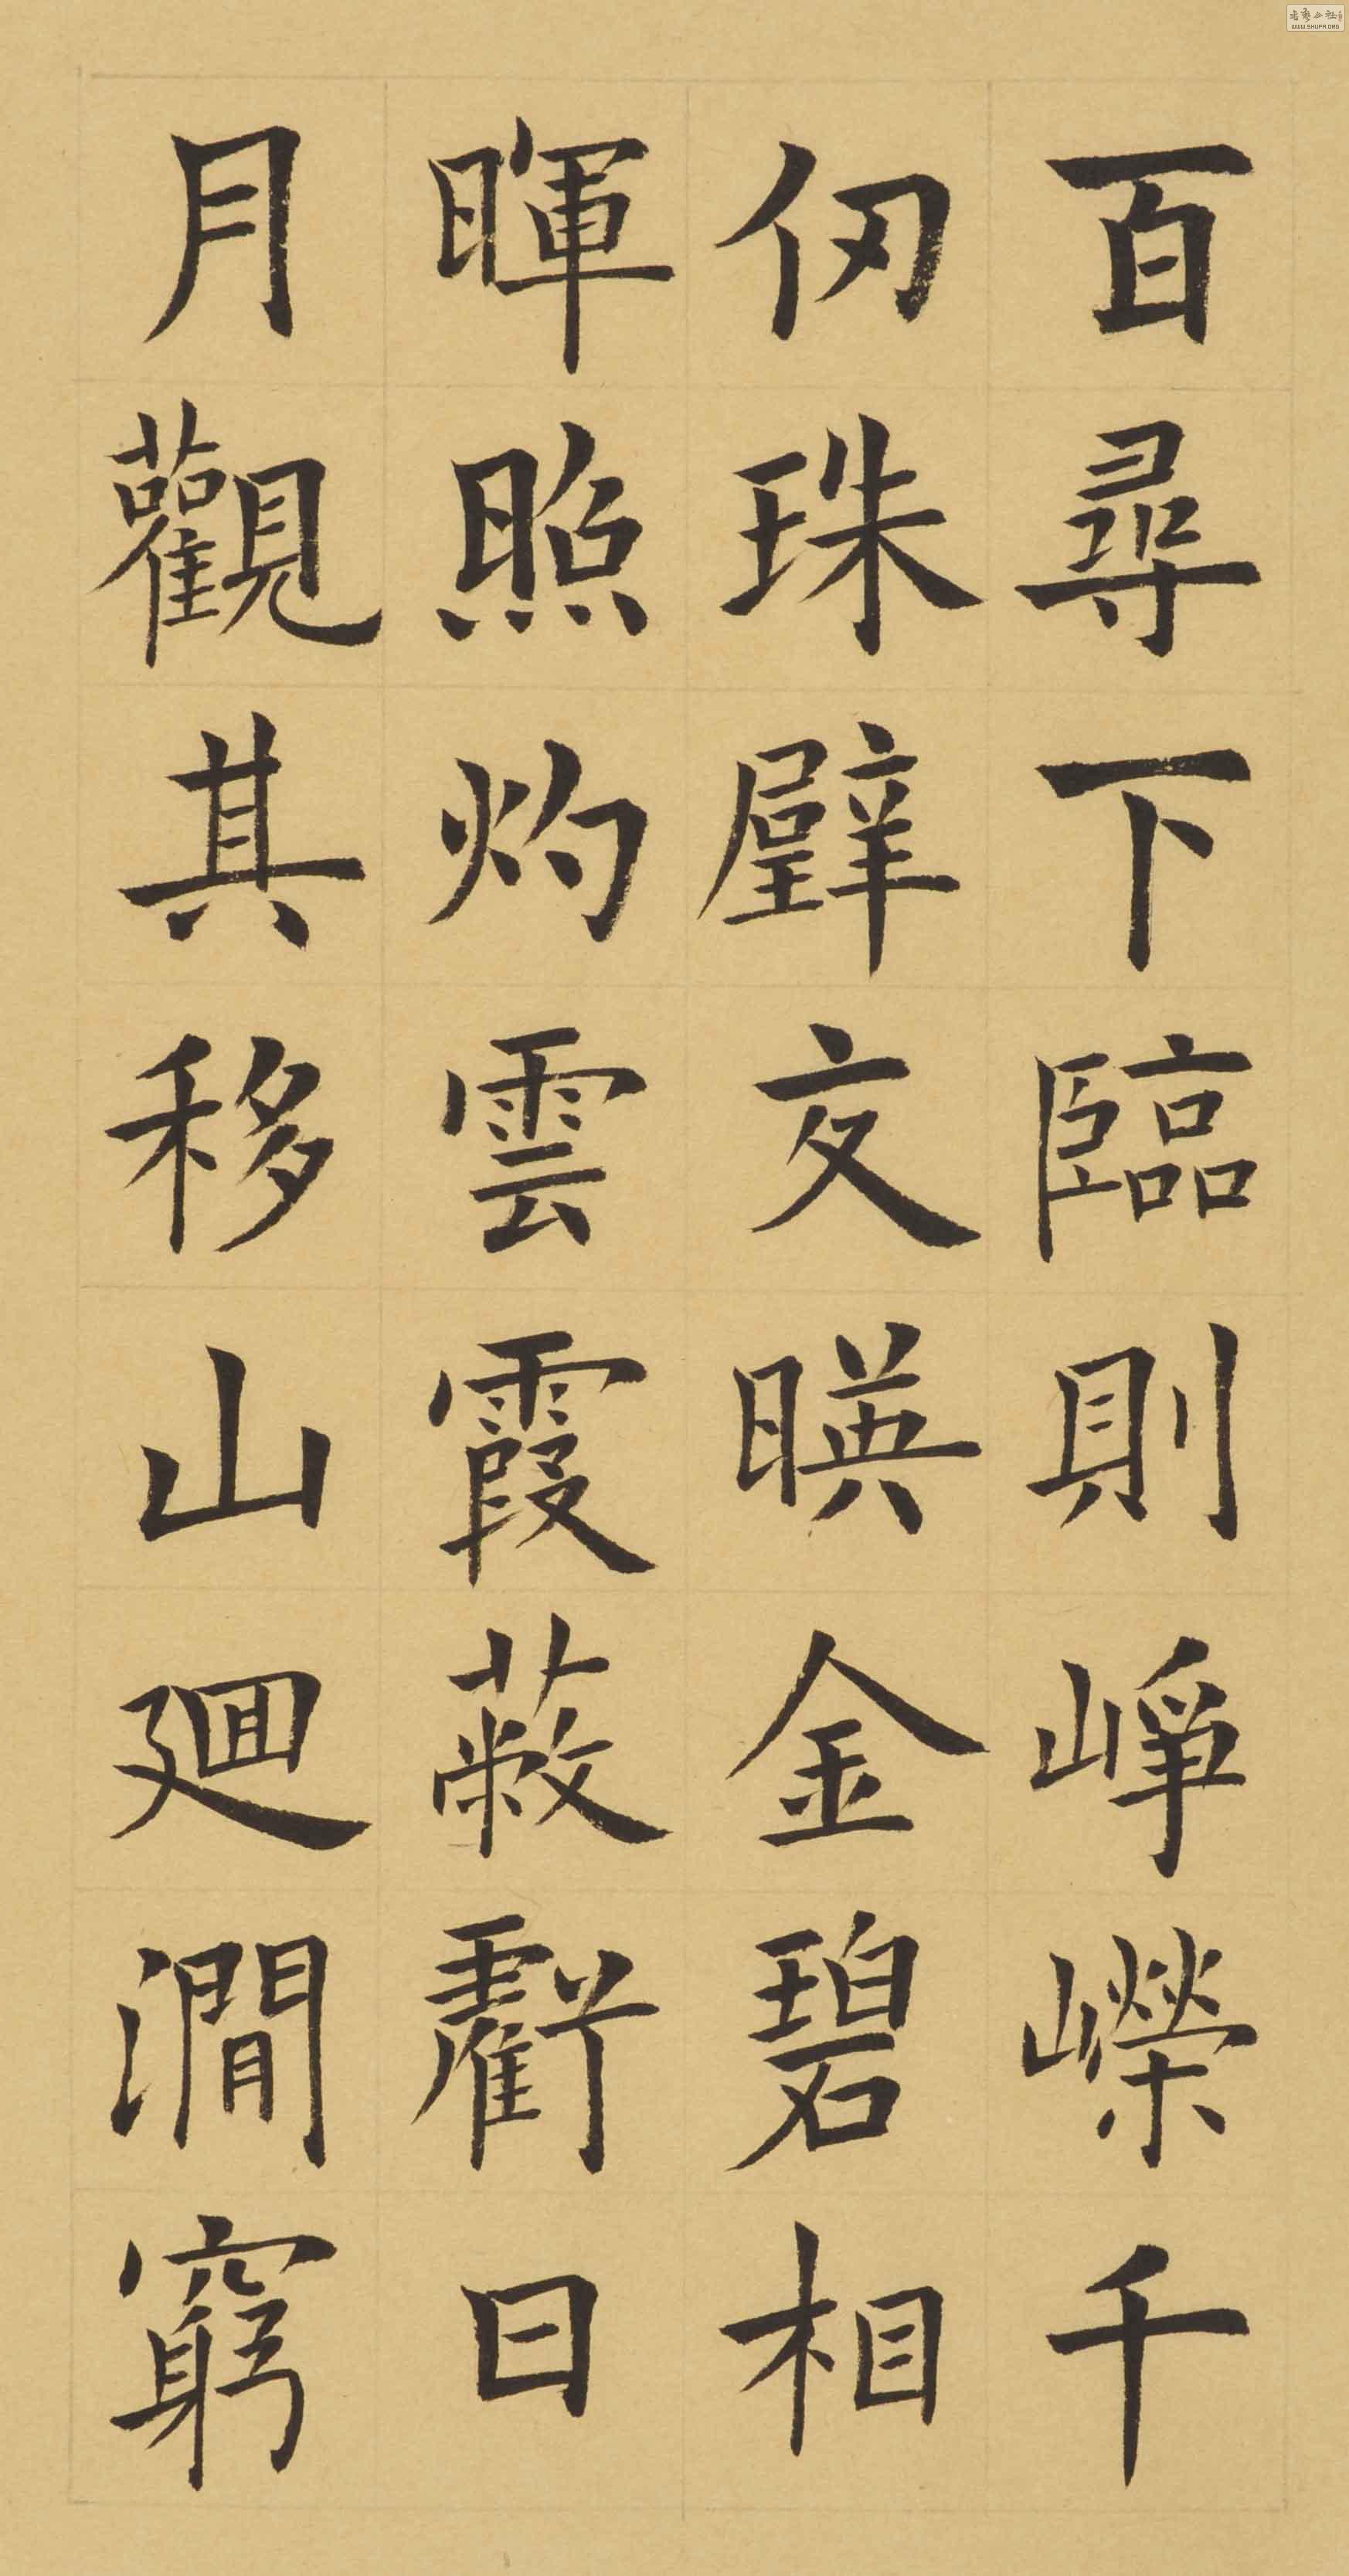 百尋下臨則崢嶸千
仞珠璧交暎金碧相
暉照灼雲霞蔽虧日
月觀其移山廻澗窮
WWW.SHUFA.ORG